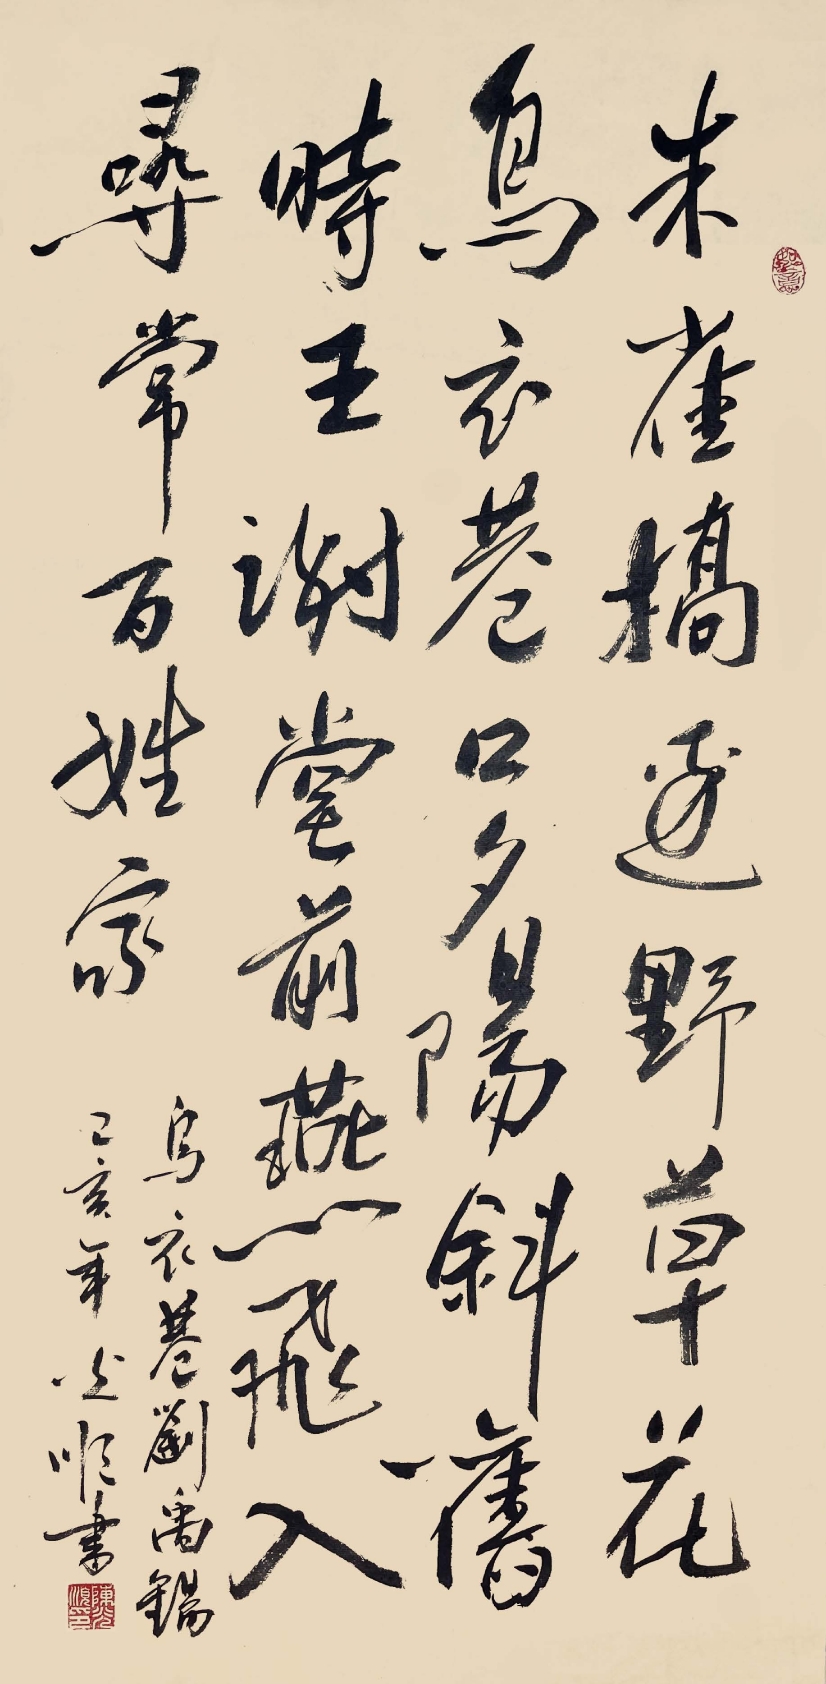 朱雀橋邊野草花
烏衣巷口夕陽斜舊
時王謝堂前燕飛入
尋常百姓家
烏衣巷劉禹錫
己亥年光順書
陳光順印